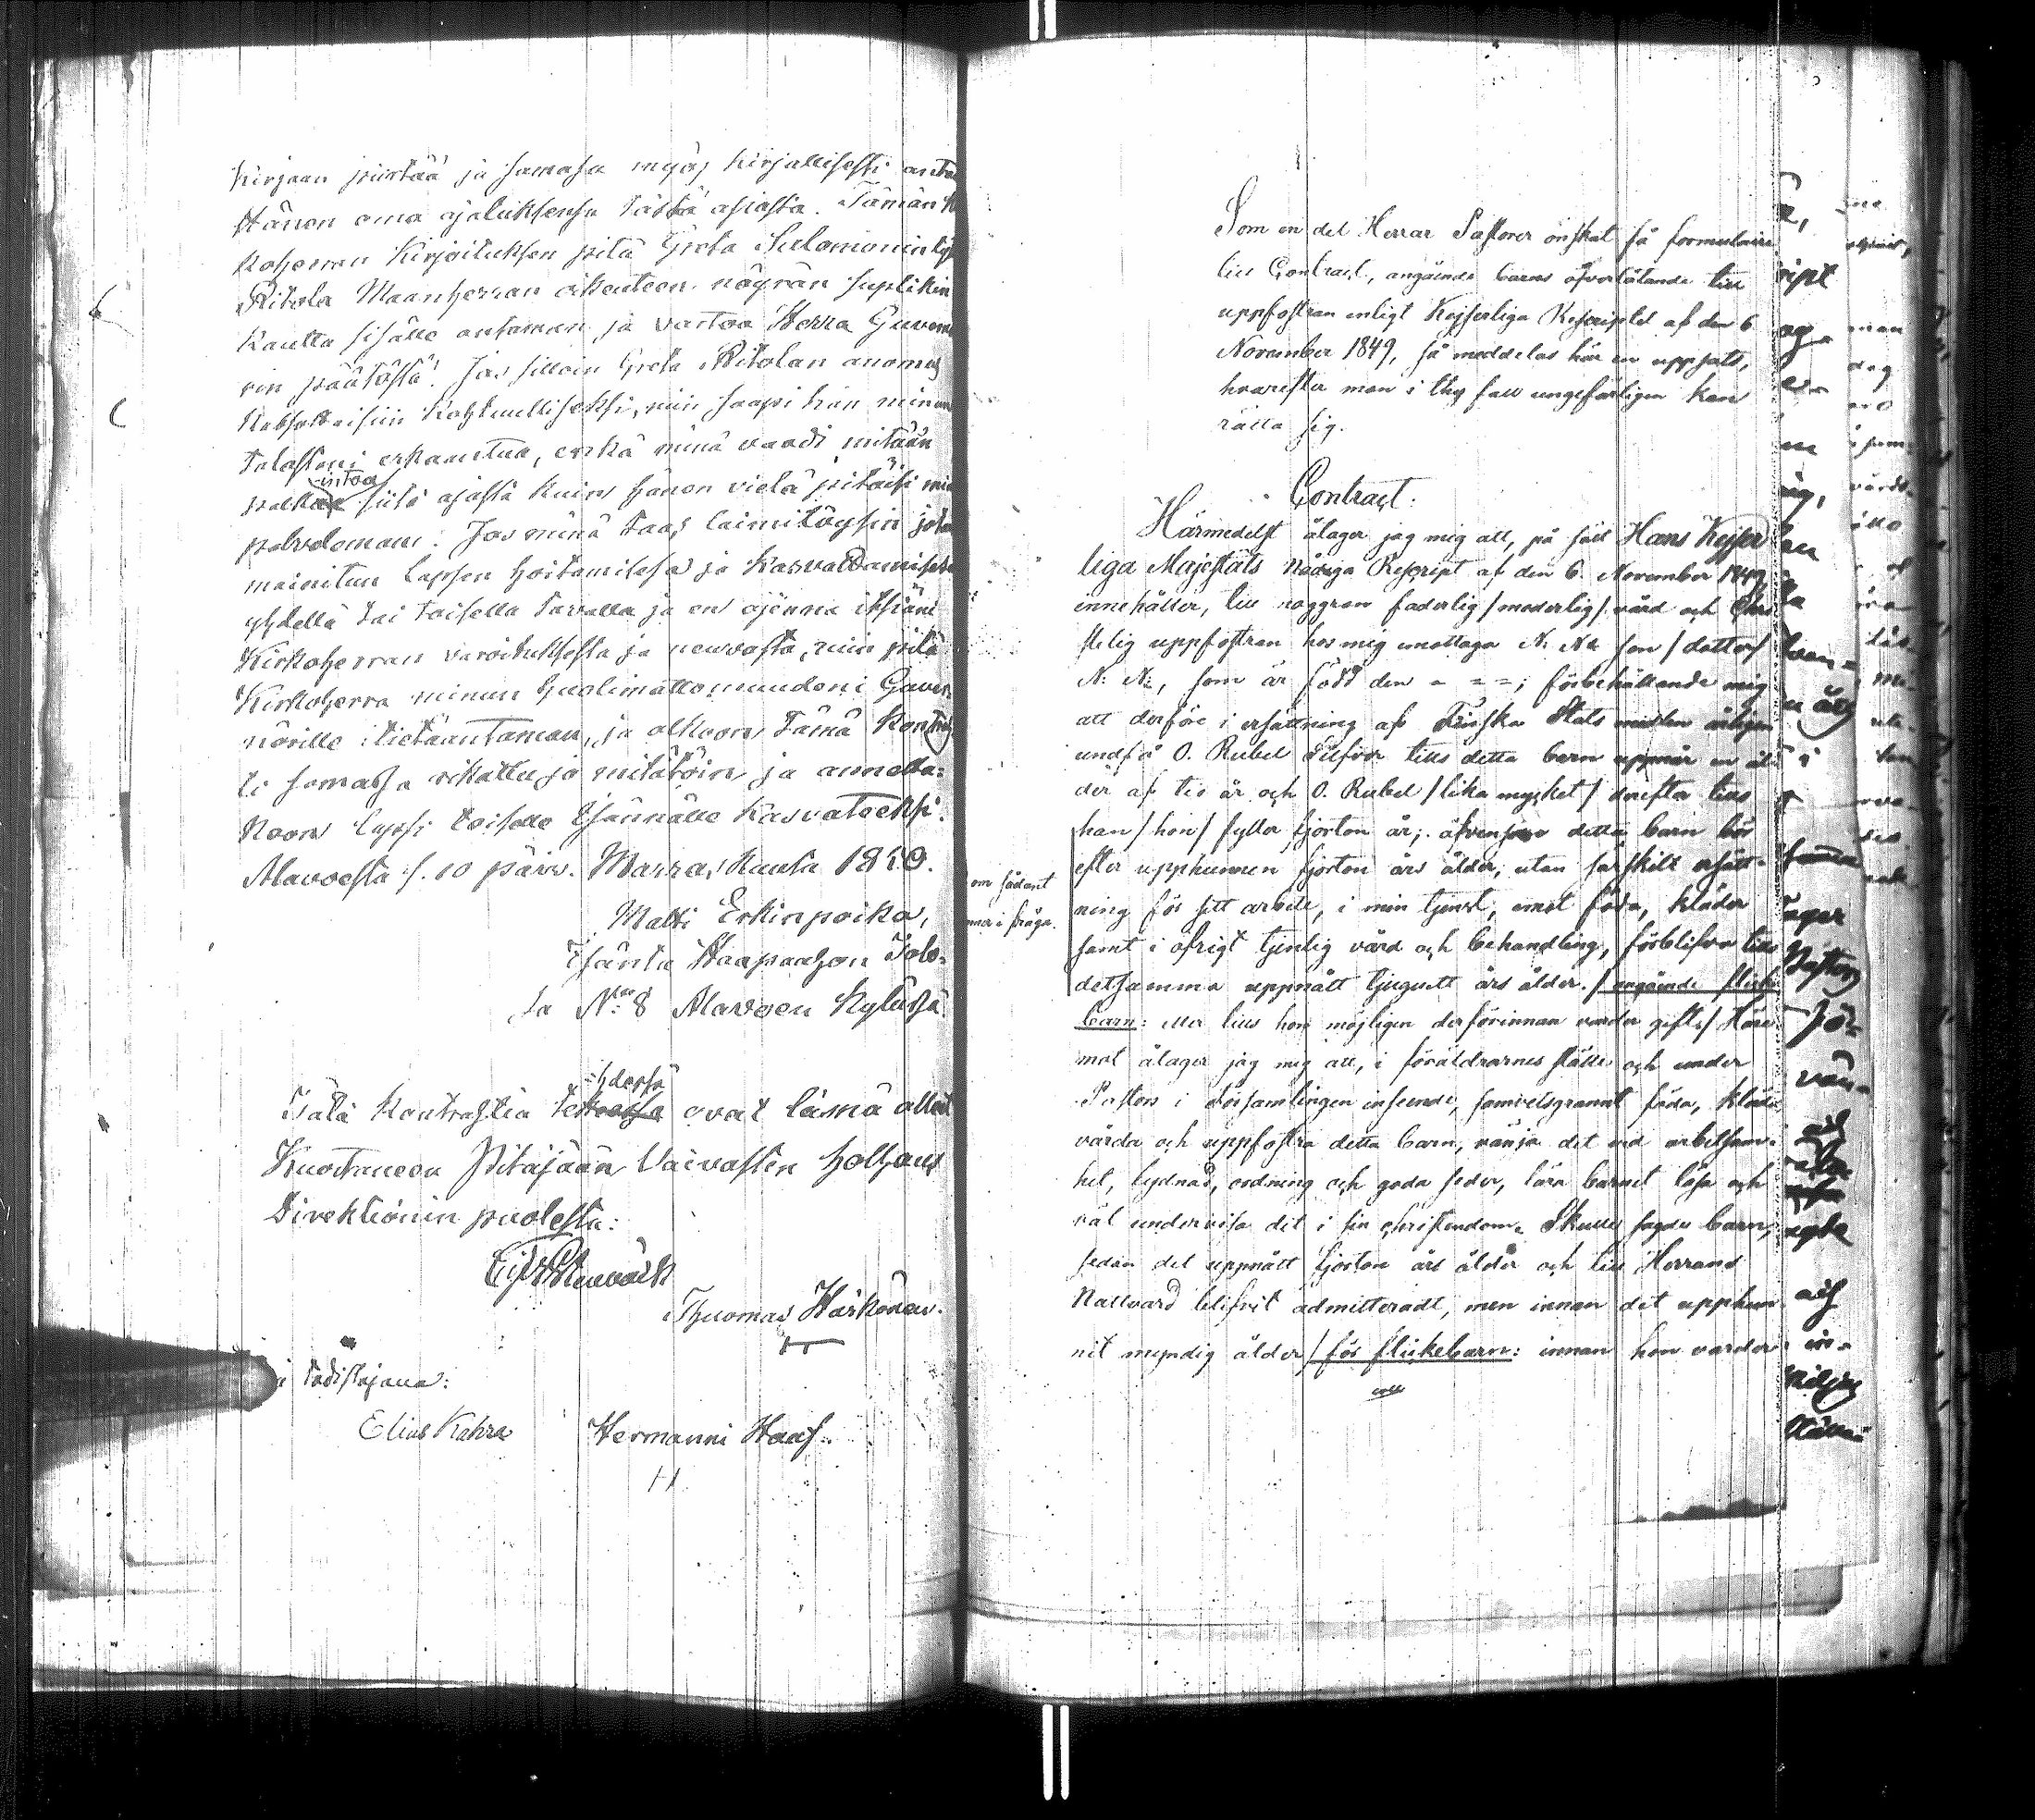 Kirjaan piirtää ja samasa myös kirjallisesti anta
Hänen oma ajatuksensa tästä asiasta. Tämän K
koherran Kirjoituksen pitä Greta Salomonintyt
Ritola Maanherran oikeuteen näyrän suplikin
kautta sisälle antaman ja vartoa Herra Guvern
rin päätöstä. Jos silloin Greta Ritolan anomus
katsottaisiin kohtuulliseksi, niin saapi hän minun
talostani erkaantua, enkä minä vaadi mitään
palkintoa siitä ajasta kuin hänen vielä pitäisi mi
palveleman. Jos minä taas laiminlöysin jota
mainitun lapsen hoitamisesa ja kasvattamisesa
yhdellä tai toisella tavalla ja en ojenna itsiäni
Kirkoherran varoituksesta ja neuvosta, niin pitä
Kirkoherra minun huolimattomuudeni Guver-
nörille tietäantaman, ja olkoon tämä Kontrah
ti samassa rikottu ja mitätöin ja annetta-
koon lapsi toiselle Isännälle kasvatteeksi.
Alavoesta s. 10 päiv. Marras kuusa 1850.
Matti Erkinpoika,
Isäntä Haapaahon Talo-
sa No 8 Alavoen Kyläsä
Tätä Kontrahtia tehdessä ovat läsnä olleet
Kuortaneen Pitäjään Vaivasten holhous
Direktionin puolesta:
Thuomas Härkönen.
todistajana:
Elias Kahra Hermanni Haaf.
Som en del Herrar Pastorer önskat få formulaire
till Contract, angående barns öfverlåtande till
uppfostran enligt Kejserliga Rescriptet af den 6
November 1849, så meddelas här en uppsats,
hvarefter man i thy fall ungefärligen kan
rätta sig.
Contract.
Härmedelst ålager jag mig att, på sätt Hans Kejser
liga Majestäts Nådiga Rescript af den 6 November 1849
innehåller, till noggran faderlig/moderlig/ vård och Chri
stelig uppfostran hos mig emottaga N. Ns son/dotter/
N: N:, som är född den - - -; förbehållande mig
att derföre i ersättning af Finska Stats medlen årligen
undfå O. Rubel Silfver tills detta barn uppnår en ål-
der af tio år och O. Rubel /lika mycket/ derefter tills
han/hon/ fyller fjorton år; äfvensom detta barn bör
efter upphunnen fjorton års ålder, utan särskilt ersätt-
om sådant
ning för sitt arbete, i min tjenst, emot föda, kläder
mer i fråga.
samt i öfrigt tjenlig vård och behandling, förblifva till
detsamma uppnått tjuguett års ålder. /angående flicke
barn: eller tills hon möjligen derförinnan varder gift:/ Häre
mot ålager jag mig att, i föräldrarnes ställe och under
Pastors i Församlingen inseende, samvetsgrannt föda, kläda
vårda och uppfostra detta barn, vänja det vid arbetsam-
het, lydnad, ordning och goda seder, lära barnet läsa och
väl undervisa det i sin christendom. Skulle sagde barn,
sedan det uppnått fjorton års ålder och till Herrans
Nattvard blifvit admitteradt, men innan det upphun
nit myndig ålder /för flickebarn: innan hon varder